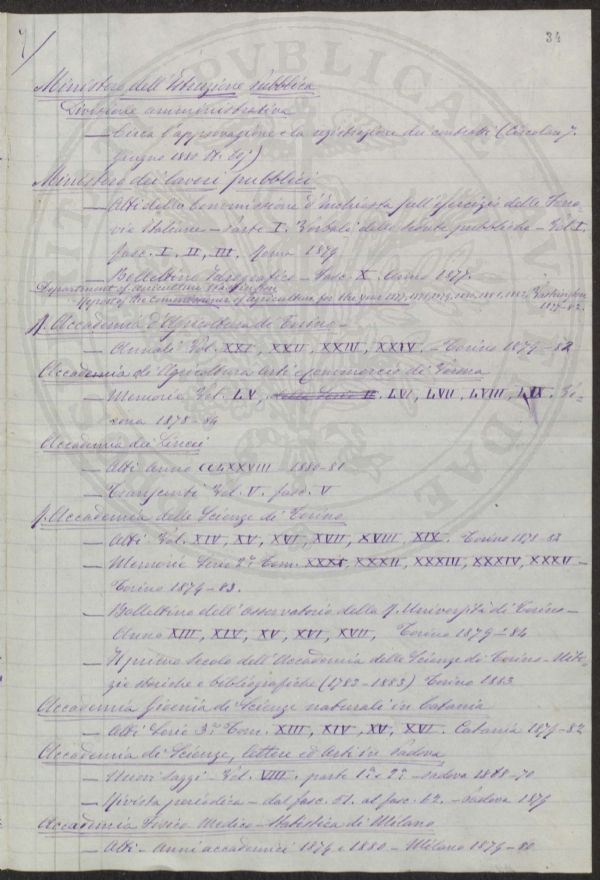 34
Ministero dell'Istruzione pubblica
Divisione amministrativa
— Circa l'approvazione e la registrazione dei contratti (Circolare 7.
giugno 1880 N.
Ministero dei lavori pubblici
— Atti della Commissione d'inchiesta sull'esercizio delle Ferro-
vie Italiane — Parte I. Verbali delle sedute pubbliche — Vol I.
fasc. I. II, III. Roma 1879
— Bollettino Idrografico — Fasc. X. Anno 1877.
Department of agriculture Washington
Report of the Commissioner of agriculture for the year 1877, 1878, 1879, 1880, 1881, 1882 Washington
1877-82.
R. Accademia d'Agricoltura di Torino —
— Annali Vol. XXI, XXII, XXIII, XXIV. — Torino 1879-82
Accademia di Agricoltura Arti e Commercio di Verona
— Memorie Vol. LV, della Serie II, LVI, LVII, LVIII, LIX. Ve-
rona 1878-84
Accademia dei Lincei
— Atti anno CCLXXVIII — 1880-81
— Transunti Vol. V. fasc. V
R. Accademia delle Scienze di Torino
— Atti Vol. XIV, XV, XVI, XVII, XVIII, XIX. Torino 1871-83
— Memorie Serie 2ª Tom. XXXI, XXXII, XXXIII, XXXIV, XXXV —
Torino 1879-83.
— Bollettino dell'Osservatorio della R. Università di Torino —
Anno XIII, XIV, XV, XVI, XVII, Torino 1879-84
— Il primo Secolo dell'Accademia delle Scienze di Torino — Noti-
zie storiche e bibliografiche (1783-1883) Torino 1883
Accademia Gioenia di Scienze naturali in Catania
— Atti Serie 3ª Tom. XIII, XIV, XV, XVI. Catania 1879-82
Accademia di Scienze, lettere ed Arti in Padova
— Nuovi Saggi — Vol. VIII. parte 1ª e 2ª — Padova 1868-70
— Rivista periodica — dal fasc. 51. al fasc. 62. — Padova 1879
Accademia Fisico-Medico-Statistica di Milano
— Atti — Anni accademici 1879 e 1880 — Milano 1879-80